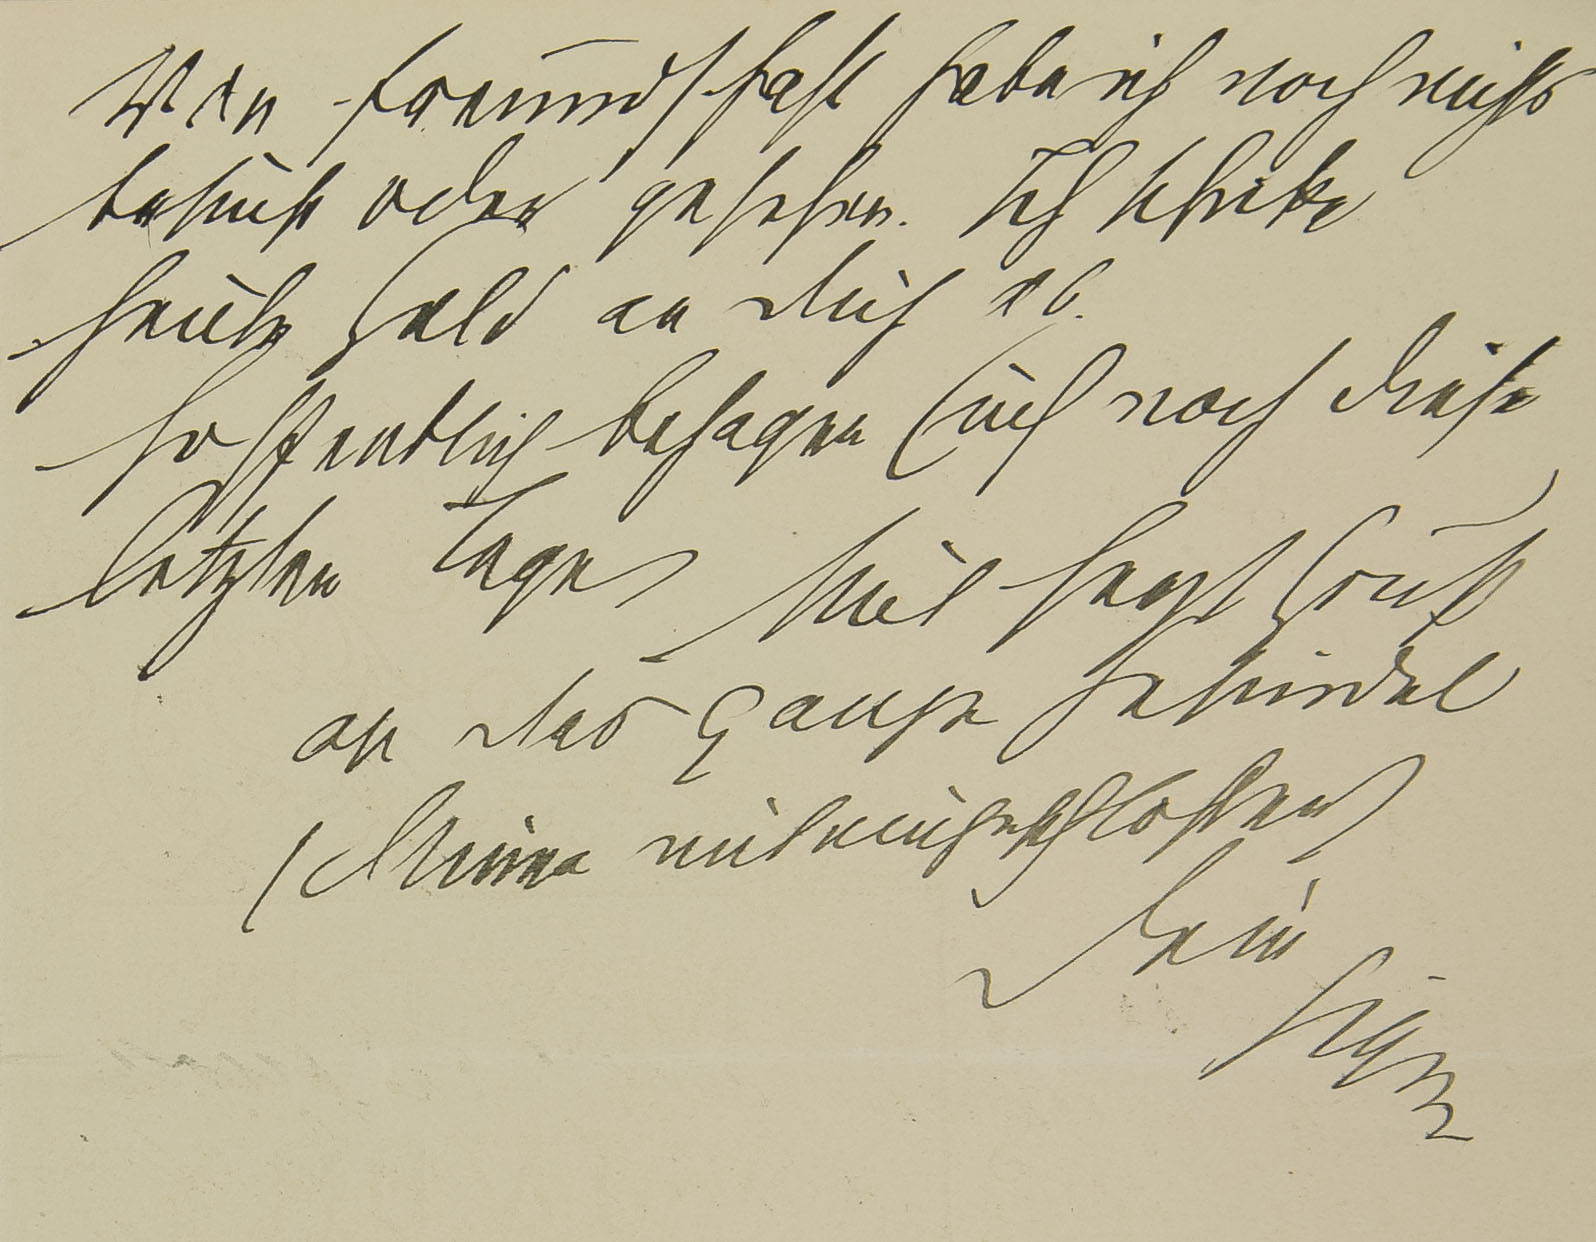 Von Freundschaft habe ich noch nichts
besucht oder gesehen. Ich schicke
heute Geld an Dich ab.
Hoffentlich behagen Euch noch diese
letzten Tage
Viel herzl Gruß
an das ganze Gesindel
(Minna miteingeschlossen)
Dein
Sigm